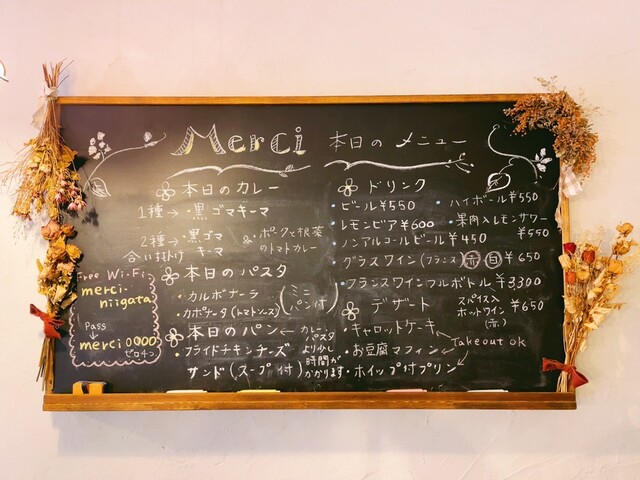 Merci 本日の メニュー
本日のカレー
1種→・黒ゴマキーマ
2種→・黒ゴマ
合いがけ キーマ
& ・ポークと根菜
のトマトカレー
本日のパスタ
・カルボナーラ
・カポナータ(トマトソース)
(ミニ
パン付)
本日のパン←
カレー、
パスタ
より少し
時間が
かかります
・フライドチキンチーズ
サンド(スープ付)
Free Wi-Fi
merci-
niigata
Pass
↓
merci0000
ゼロ4つ
ドリンク
・ビール¥550
・ハイボール¥550
・レモンビア¥600
・果肉入レモンサワー
¥550
・ノンアルコールビール¥450
・グラスワイン(フランス)赤 白 ¥650
・フランスワインフルボトル ¥3,300
スパイス入
ホットワイン
(赤) ¥650
デザート
・キャロットケーキ
・お豆腐マフィン
・ホイップ付プリン
Takeout ok